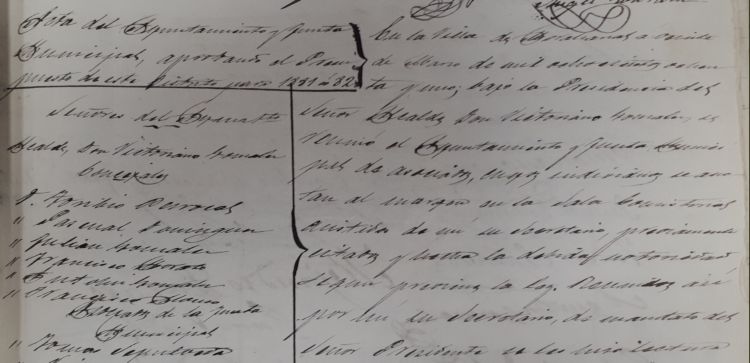 Acta del Ayuntamiento y Junta
Municipal, aprobando el Presu
puesto de este Distrito para 1881 á 82
Señores del Ayunatº
Alcalde, Don Victoriano Gonzalez
Concejales
D. Toribio
" Pascual Dominguez
" Julian Gonzalez
" Francisco
" Antolin Gonzalez
" Francisco Blanco
Vocales de la Junta
Municipal
" Tomas Sepulveda
En la Villa de á veinte
de Marzo de mil ochocientos ochen
ta y uno; bajo la Presidencia del
Señor Alcalde Don Victoriano Gonzalez, se
reunió el Ayuntamiento y Junta Munici
pal de asociados, cuyos individuos se ano
tan al margen en la Sala Consistorial
asistidos de mí su Secretario, previamente
citados y hecha la debida notoriedad
segun previene la ley. Reunidos así
por mí su Secretario, de mandato del
Señor Presidente se les hizo lectura